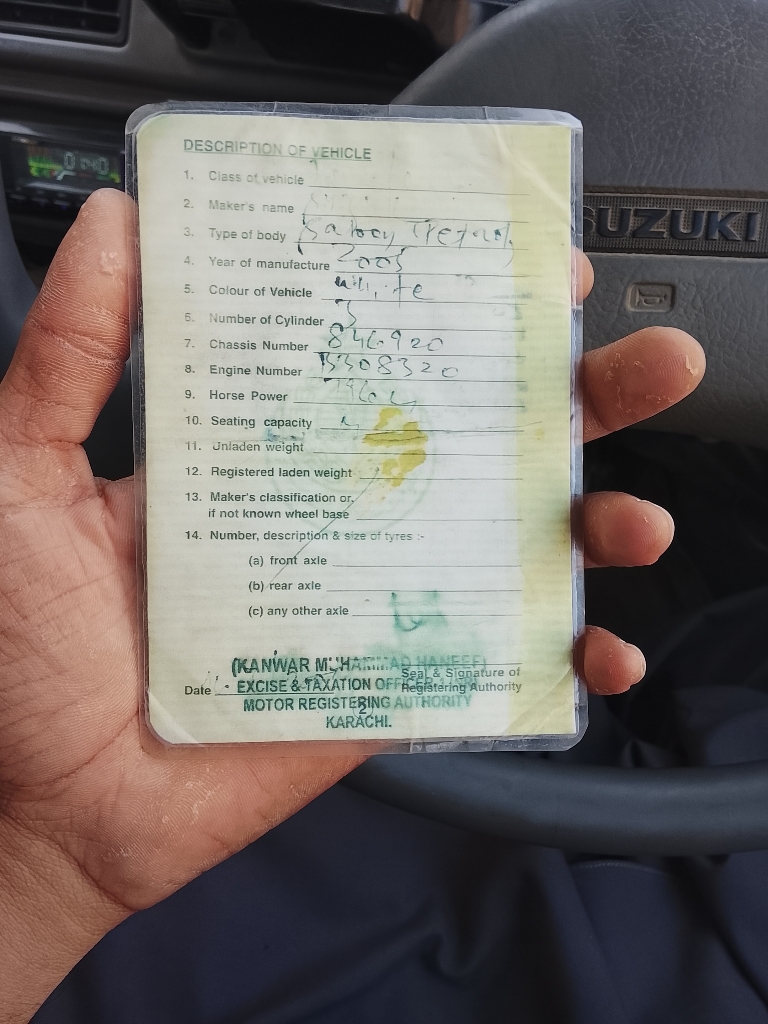 DESCRIPTION OF VEHICLE
1. Class of vehicle
2. Maker's name
SUZUKI
3. Type of body
4. Year of manufacture 2005
5. Colour of Vehicle white
6. Number of Cylinder 3
7. Chassis Number 846920
8. Engine Number
9. Horse Power
10. Seating capacity
11. Unladen weight
12. Registered laden weight
13. Maker's classification or,
if not known wheel base
14. Number, description & size of tyres :-
(a) front axle
(b) rear axle
(c) any other axle
(KANWAR MUHAMMAD HANEEF)
Seal & Signature of
Date EXCISE & TAXATION OFFICER
Registering Authority
MOTOR REGISTERING AUTHORITY
(2)
KARACHI.